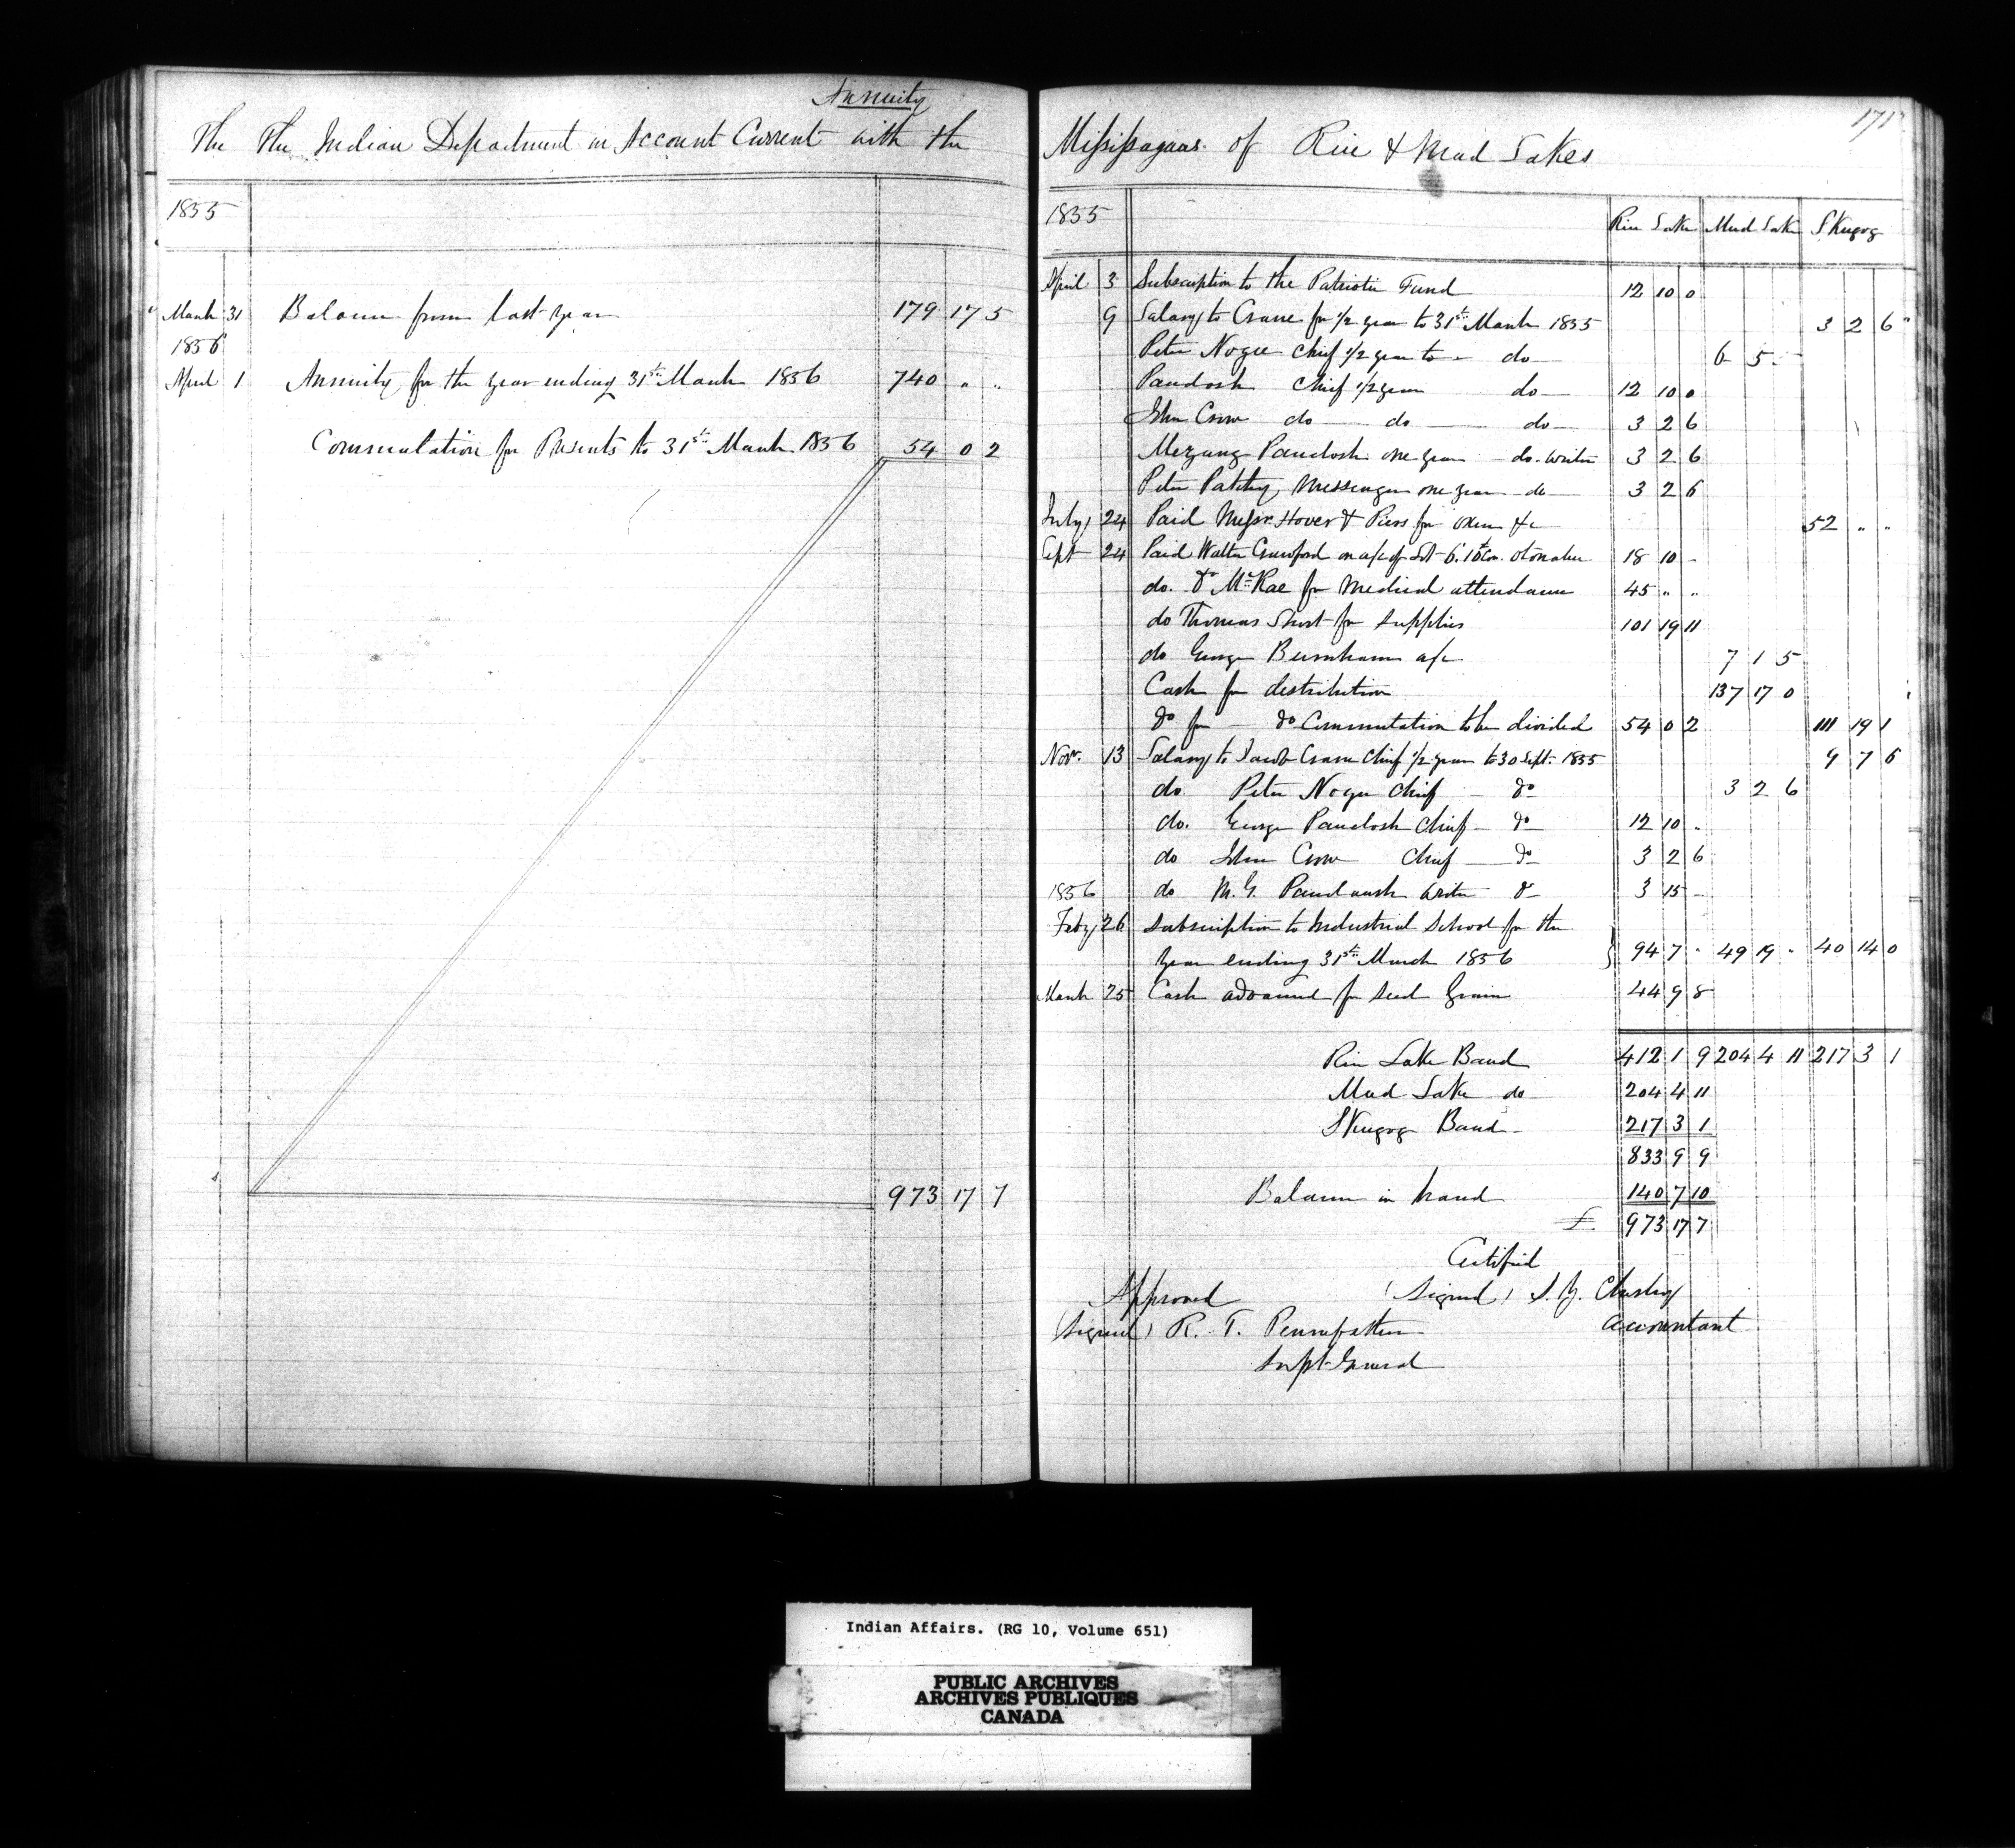 Annuity
The The Indian Department in Account Current with the
1855
March 31 Balance from last year 179 17 5
1856
April 1 Annuity for the year ending 31st March 1856 740 " "
Commutation for Presents to 31st March 1856 54 0 2
973 17 7
171
Missisagaas of Rice & Mud Lakes
1855 Rice Lake Mud Lake Skugog
April 3 Subscription to the Patriotic Fund 12 10 0
9 Salary to Crane for 1/2 year to 31st March 1855 3 2 6
Peter Nogee Chief 1/2 year to - do 6 5 -
Paudosh Chief 1/2 year do 12 10 0
John Crow do do do 3 2 6
Mezang Paudosh one year do. writer 3 2 6
Peter Patchy, Messenger one year do 3 2 6
July 24 Paid Messrs Hover & Piers for oxen &c 52 " "
Sept 24 Paid Walter Crawford on a/c of Lot 6. 10th Con. Otonabee 18 10 -
do. Dr McRae for Medical attendance 45 " "
do Thomas Short for supplies 101 19 11
do George Burnham a/c 7 1 5
Cash for distribution 137 17 0
Do for Do Commutation to be divided 54 0 2 111 19 1
Novr. 13 Salary to Jacob Crane Chief 1/2 year to 30 Sept. 1855 9 7 6
do Peter Nogee Chief Do 3 2 6
do. George Paudosh Chief Do 12 10 -
do John Crow Chief Do 3 2 6
1856 do M. G. Paudaush writer Do 3 15 -
Feby 26 Subscription to Industrial School for the
year ending 31st March 1856 94 7 " 49 19 " 40 14 0
March 25 Cash advanced for Seed Grain 44 9 8
Rice Lake Band 412 1 9 204 4 11 217 3 1
Mud Lake do 204 4 11
Skugog Band 217 3 1
833 9 9
Balance in hand 140 7 10
£ 973 17 7
Certified
Approved (Signed) S. Y. Chesley
(Signed) R. T. Pennefather Accountant
Supt. General
Indian Affairs. (RG 10, Volume 651)
PUBLIC ARCHIVES
ARCHIVES PUBLIQUES
CANADA